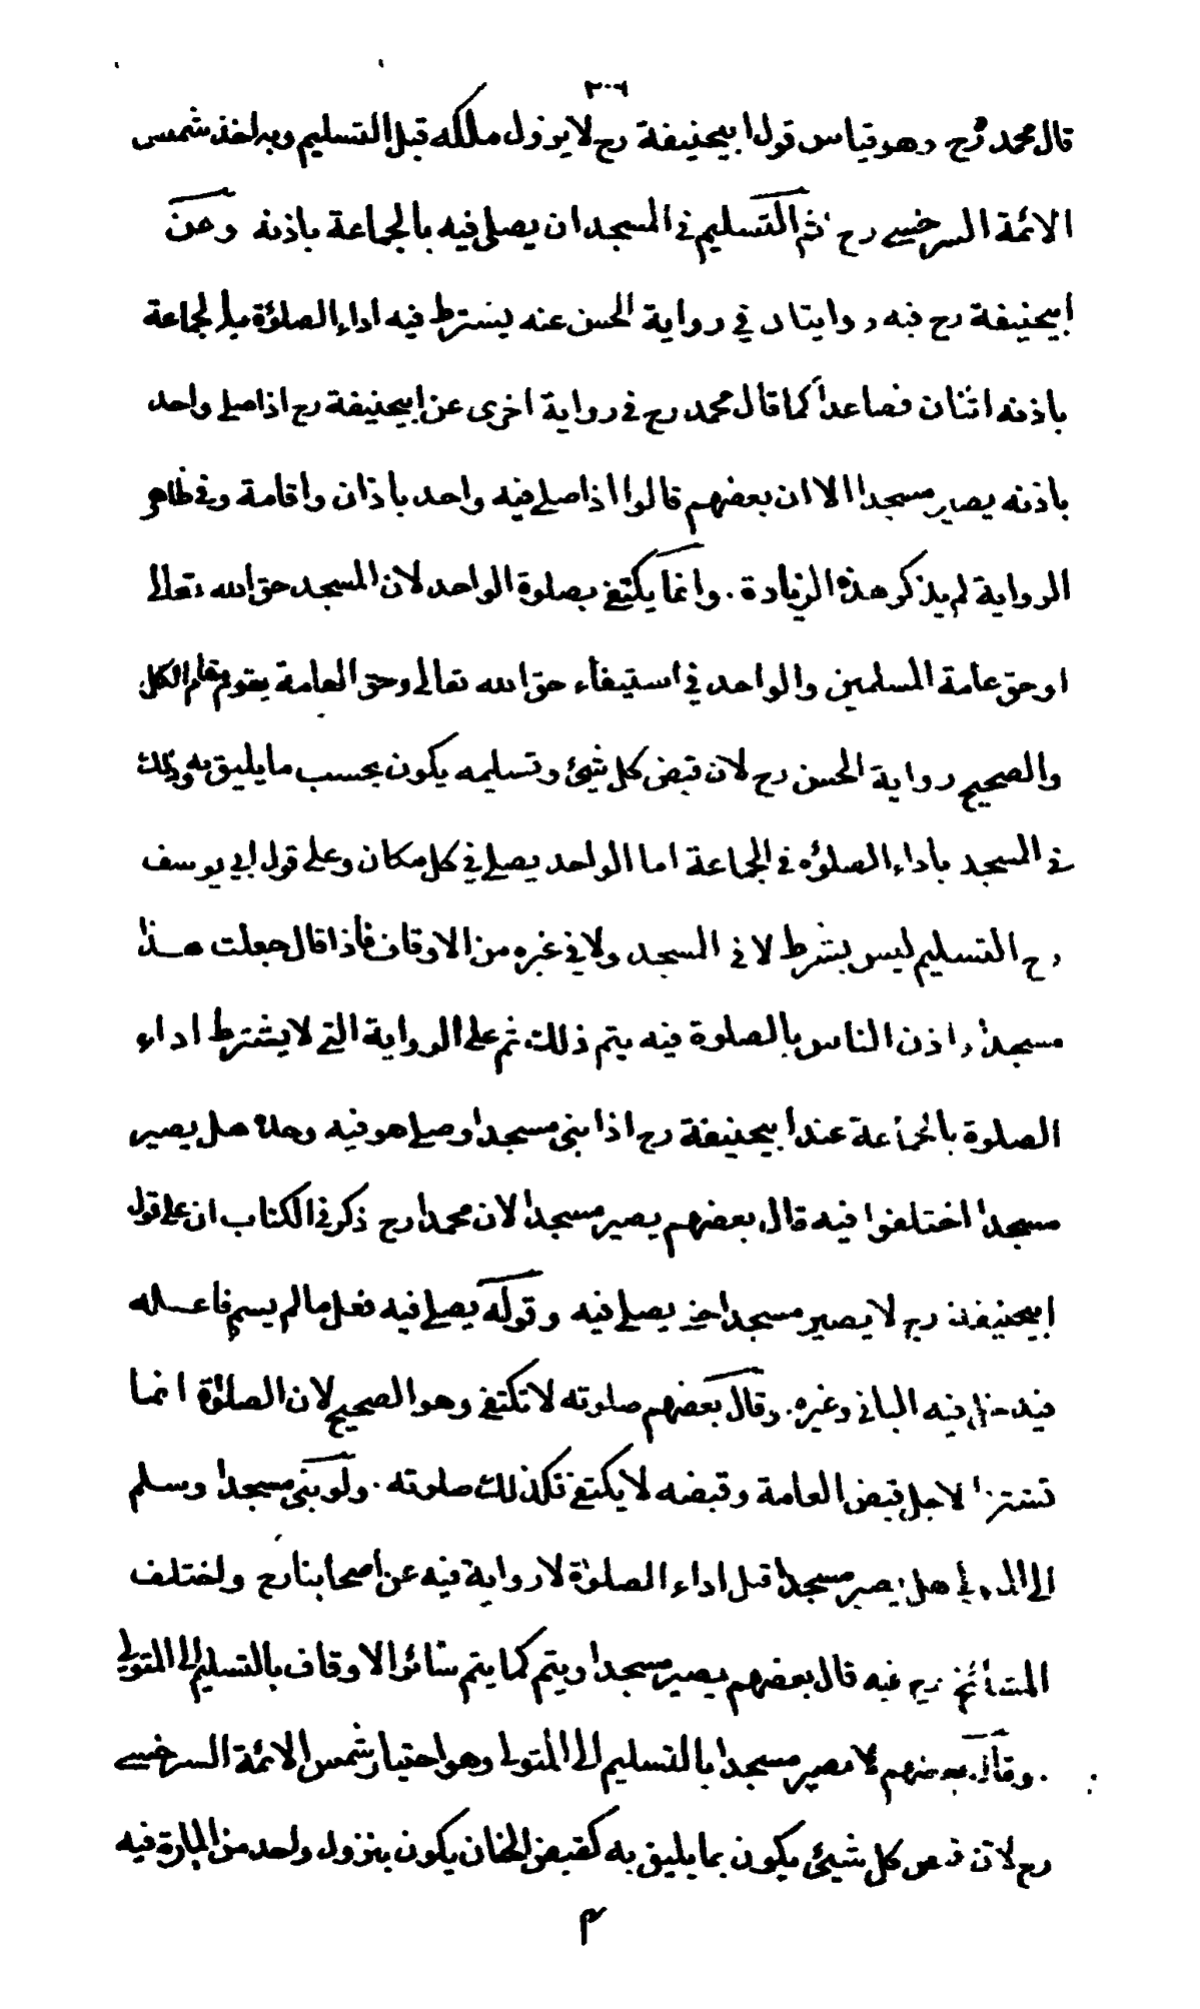 ٣٠٦
قال محمد رح وهو قياس قول ابيحنيفة رح لا يزول ملكه قبل التسليم وبه اخذ شمس
الائمة السرخسي رح ثم التسليم في المسجد ان يصلى فيه بالجماعة باذنه وعن
ابيحنيفة رح فيه روايتان في رواية الحسن عنه يشترط فيه اداء الصلوة بالجماعة
باذنه اثنان فصاعدا كما قال محمد رح في رواية اخرى عن ابيحنيفة رح اذا صلى واحد
باذنه يصير مسجدا الا ان بعضهم قالوا اذا صلى فيه واحد باذان واقامة وفي ظاهر
الرواية لم يذكر هذه الزيادة . وانما يكتفى بصلوة الواحد لان المسجد حق الله تعالى
او حق عامة المسلمين والواحد في استيفاء حق الله تعالى وحق العامة يقوم مقام الكل
والصحيح رواية الحسن رح لان قبض كل شيئ وتسليمه يكون بحسب ما يليق به وذلك
في المسجد باداء الصلوة في الجماعة اما الواحد يصلي في كل مكان وعلى قول ابي يوسف
رح التسليم ليس بشرط لا في المسجد ولا في غيره من الاوقاف فاذا قال جعلت هذا
مسجدا واذن الناس بالصلوة فيه يتم ذلك ثم على الرواية التي لا يشترط اداء
الصلوة بالجماعة عند ابيحنيفة رح اذا بنى مسجدا وصلى هو فيه وحده هل يصير
مسجدا اختلفوا فيه قال بعضهم يصير مسجدا لان محمدا رح ذكر في الكتاب ان على قول
ابيحنيفة رح لا يصير مسجدا حتى يصلى فيه وقوله يصلى فيه فعل ما لم يسم فاعله
فيدخل فيه الباني وغيره . وقال بعضهم صلوته لا تكتفى وهو الصحيح لان الصلوة انما
تشترط لاجل قبض العامة وقبضه لا يكتفى فكذلك صلوته . ولو بنى مسجدا وسلم
الى المتولي هل يصير مسجدا قبل اداء الصلوة لا رواية فيه عن اصحابنا رح واختلف
المشائخ رح فيه قال بعضهم يصير مسجدا ويتم كما يتم سائر الاوقاف بالتسليم الى المتولي
. وقال بعضهم لا يصير مسجدا بالتسليم الى المتولى وهو اختيار شمس الائمة السرخسي
رح لان قبض كل شيئ يكون بما يليق به كقبض الخان يكون بنزول واحد من المارة فيه
م